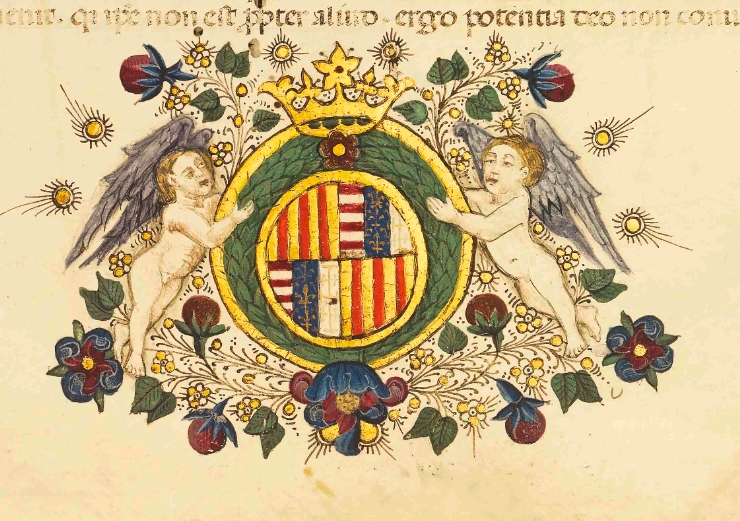 uenit. q̇ ip̄e non est p̱pter aliud. ergo potentia deo non conu